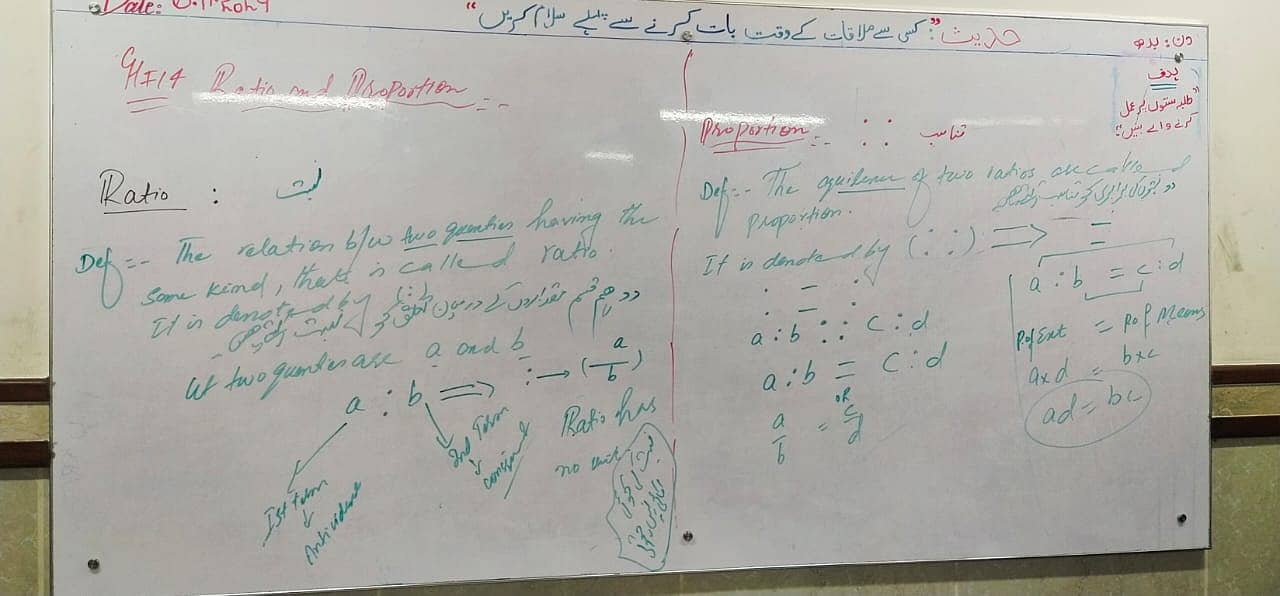 Date:
حدیث: "کسی سے ملاقات کے وقت بات کرنے سے پہلے سلام کریں"
دن: بدھ
ہدف
"طلبہ سنتوں پر عمل
کرنے والے بنیں"
Ratio and Proportion
Ratio : نسبت
Def:- The relation b/w two quenties having the
same kind, that is called ratio.
It is denoted by (:)
دو ہم قسم مقداروں کے درمیان تعلق کو نسبت
Let two quenties are a and b
a : b ⇒ : → (a/b)
Ist term
↓
Anticidene
2nd Term
↓
Ratio has
no unit
نسبت کی کوئی
Proportion :- : : تناسب
Def:- The equilence of two ratios are called
proportion.
دو نسبتوں کی برابری کو تناسب
It is denoted by (: :) ⇒ =
: = :
a : b : : c : d
a : b = c : d
OR
a/b = c/d
a : b = c : d
P.of Ext = P.of Means
a×d = b×c
ad = bc